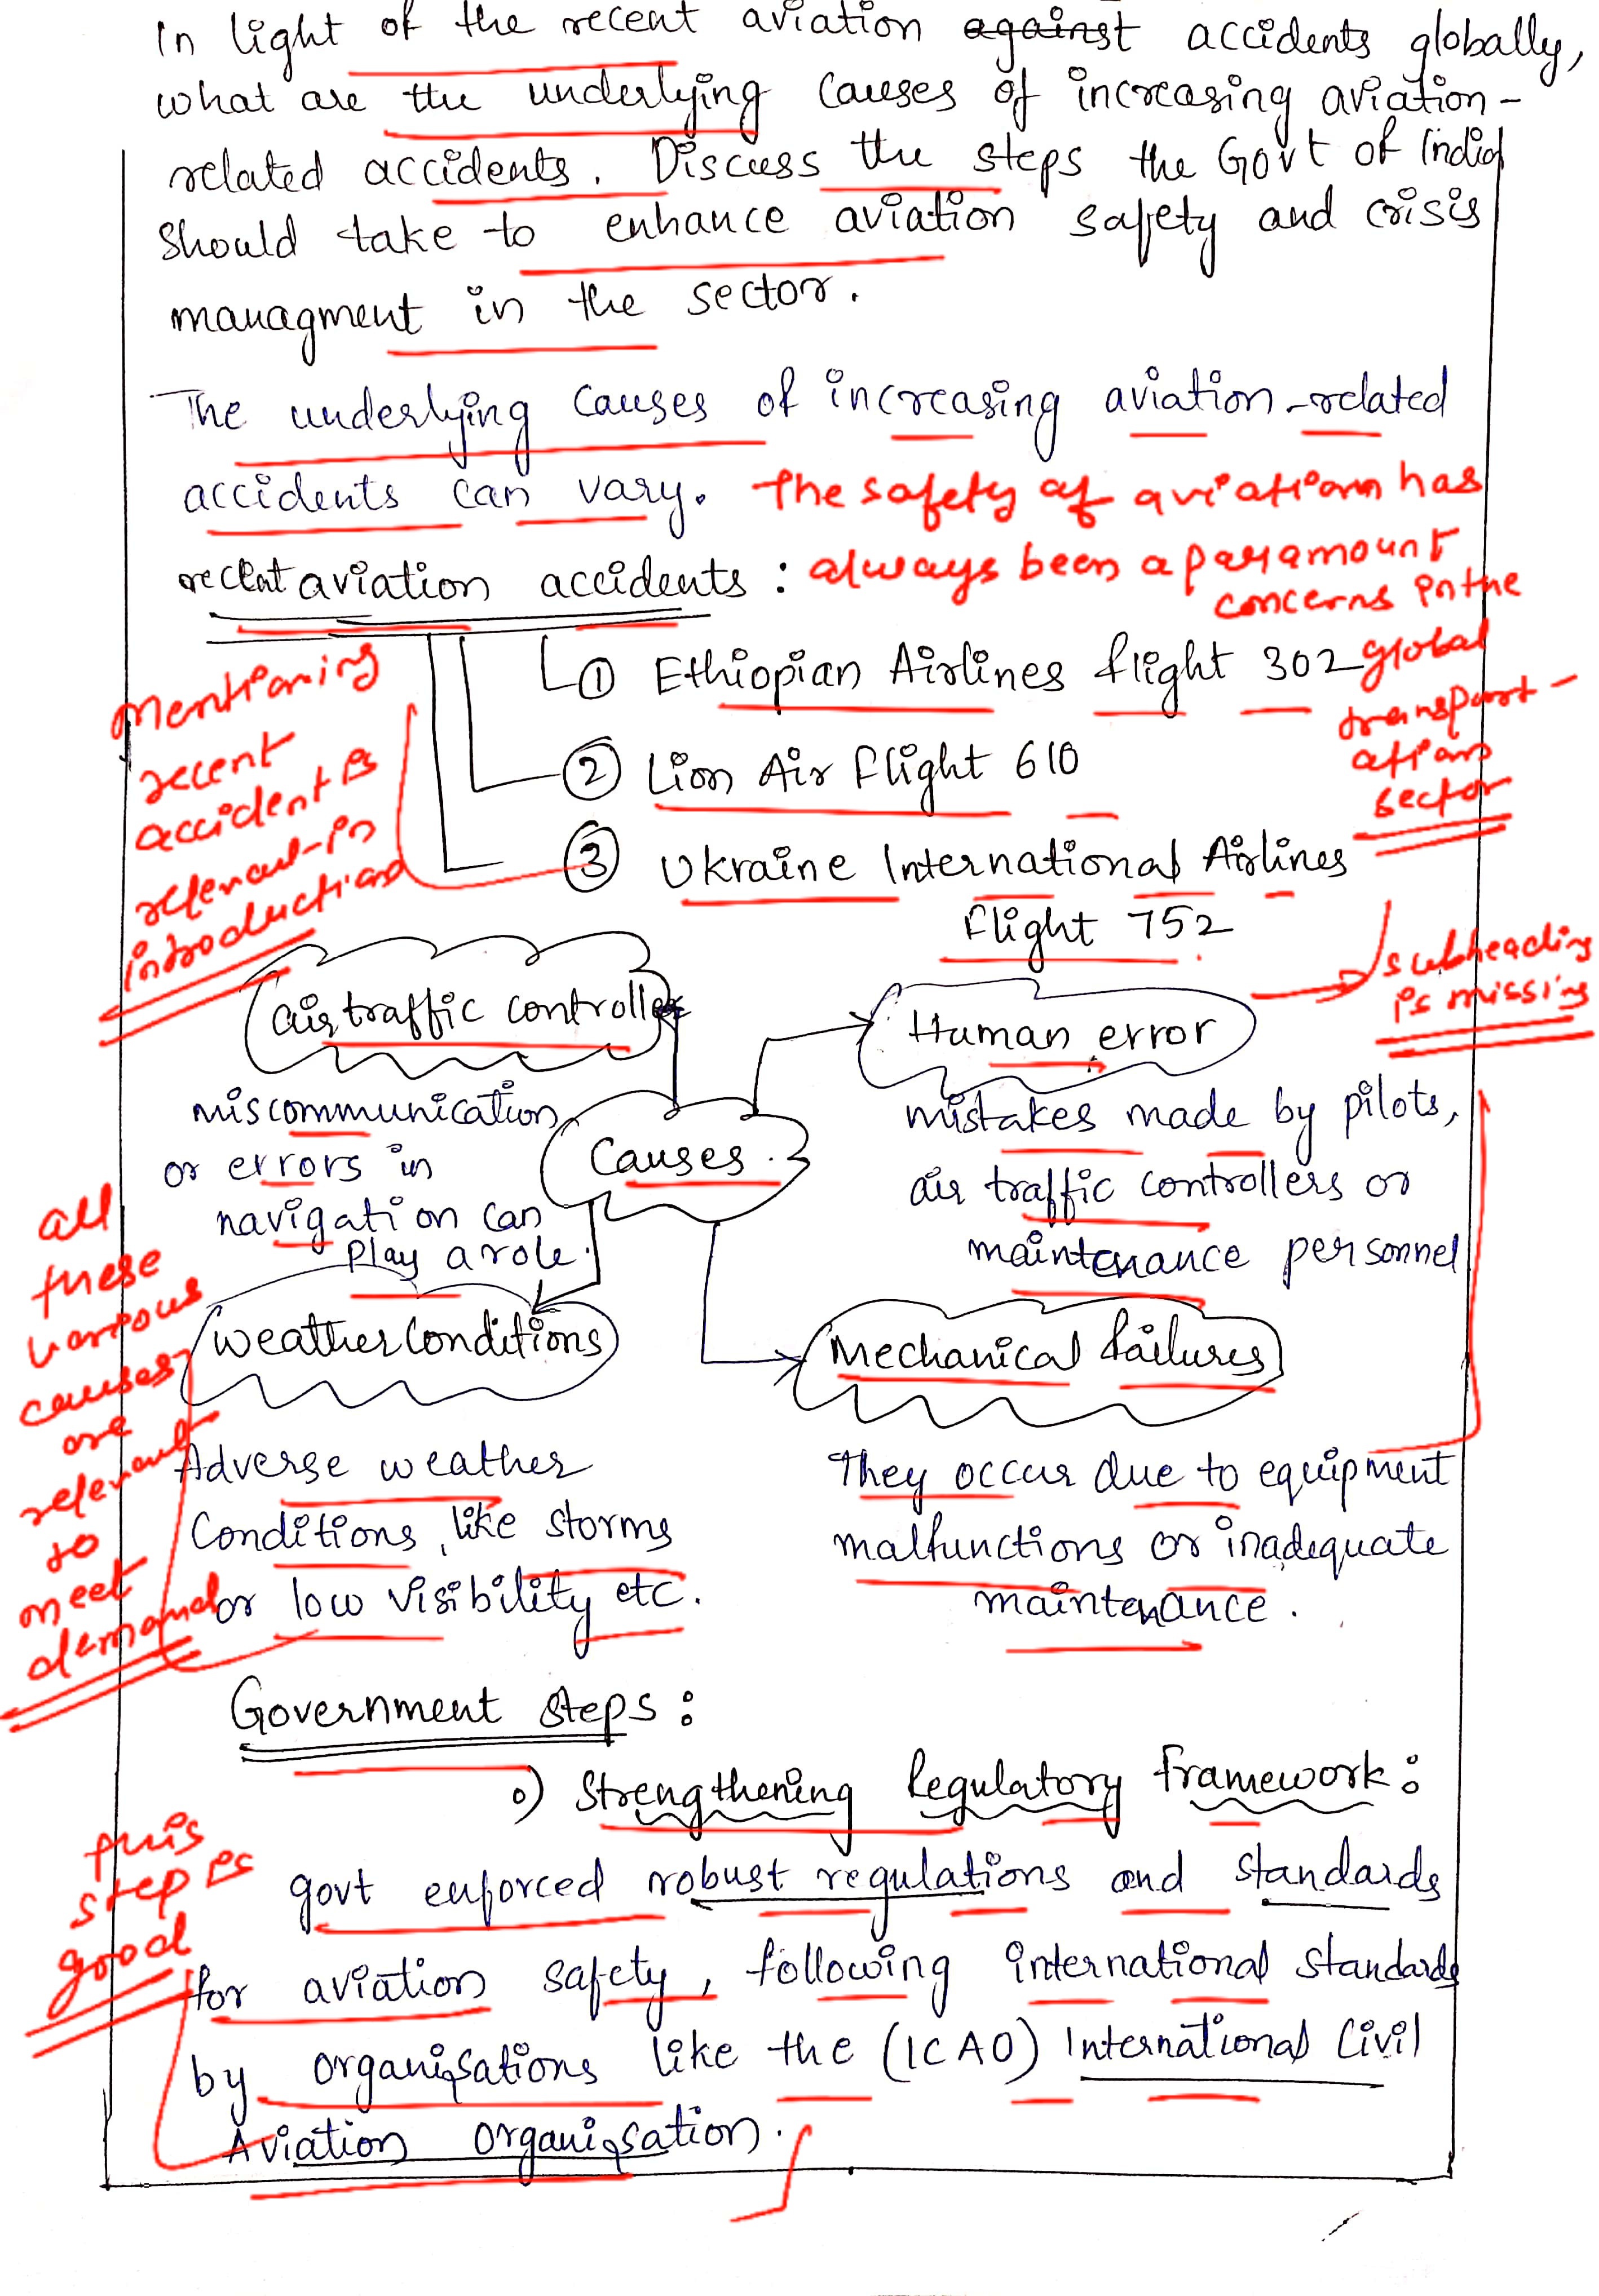 In light of the recent aviation against accidents globally,
what are the underlying causes of increasing aviation-
related accidents. Discuss the steps the Govt of India
should take to enhance aviation safety and crisis
managment in the sector.
The underlying causes of increasing aviation-related
accidents can vary.
The safety of aviation has
always been a paramount
concerns in the
global
transport-
ation
sector
recent aviation accidents :
① Ethiopian Airlines flight 302
② Lion Air Flight 610
③ Ukraine International Airlines
Flight 752
Mentioning
recent
accident is
relevant in
introduction
subheading
is missing
air traffic controller
miscommunication
or errors in
navigation can
play a role.
Causes
Human error
mistakes made by pilots,
air traffic controllers or
maintenance personnel
Weather Conditions
Adverse weather
Conditions, like storms
or low visibility etc.
Mechanical failures
They occur due to equipment
malfunctions or inadequate
maintenance.
all
these
various
causes
are
relevant
to
meet
demand
Government steps :
Strengthening Regulatory Framework :
govt enforced robust regulations and standards
for aviation safety, following international standards
by organisations like the (ICAO) International Civil
Aviation organisation.
this
step is
good